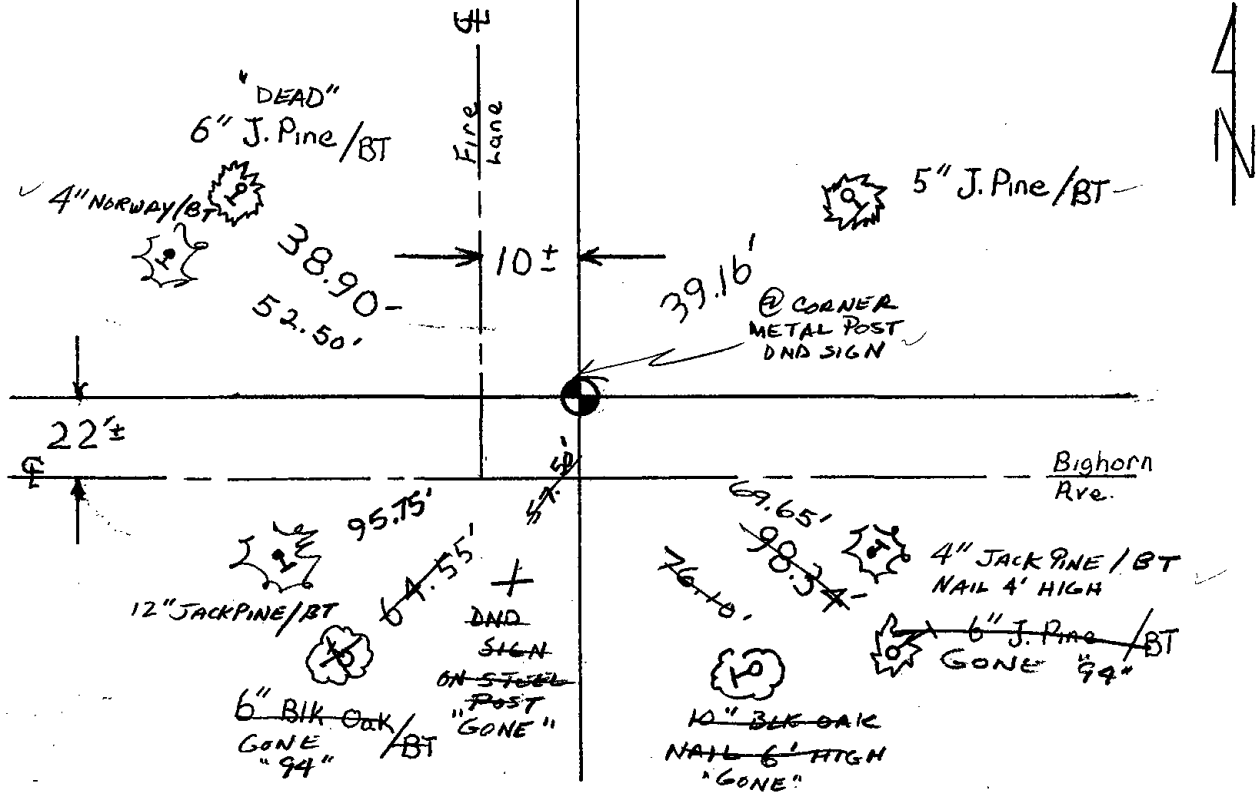 ℄
Fire
Lane
"DEAD"
6" J. Pine/BT
4" NORWAY/BT
38.90-
52.50'
10 ±
N
5" J. Pine/BT
39.16'
@ CORNER
METAL POST
DND SIGN
22'±
℄
Bighorn
Ave.
95.75'
64.55'
12" JACKPINE/BT
6" Blk Oak/BT
GONE
"94"
DND
SIGN
ON STEEL
POST
"GONE"
69.65'
98.34-
76.10'
4" JACK PINE / BT
NAIL 4' HIGH
6" J. Pine/BT
GONE "94"
10" BLK OAK
NAIL 6' HIGH
"GONE"